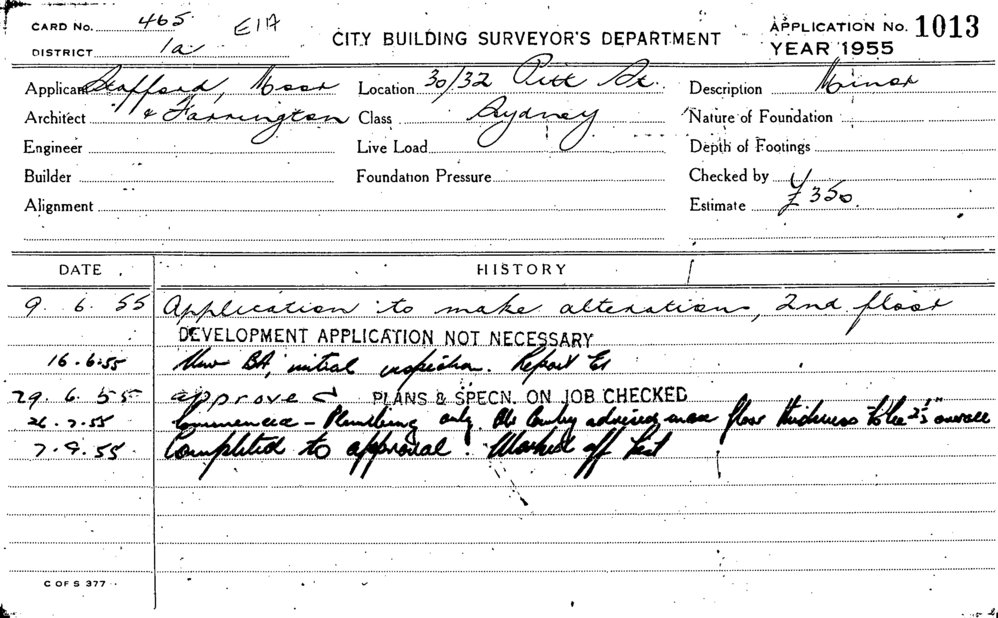 CARD No. 465 E1A
DISTRICT 1a
CITY BUILDING SURVEYOR'S DEPARTMENT
APPLICATION No. 1013
YEAR 1955
Applicant Stafford, Moor
Architect & Farrington
Engineer
Builder
Alignment
Location 30/32 Pitt St.
Class Sydney
Live Load
Foundation Pressure
Description Minor
Nature of Foundation
Depth of Footings
Checked by
Estimate £350.
DATE HISTORY
9. 6. 55 Application to make alterations, 2nd floor
DEVELOPMENT APPLICATION NOT NECESSARY
16.6.55 New BA, initial inspection. Report
29. 6. 55 approved PLANS & SPECN. ON JOB CHECKED
26.7.55 Commenced - Plumbing only. advised max floor thickness to be 2½" overall
7.9.55 Completed to approval. Marked off list
C OF S 377